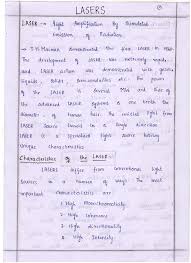 LASERS
LASER → Light Amplification by Stimulated
Emission of Radiation.
→ T.H. Maiman demonstrated the first LASER in 1960.
The development of LASER was extremely rapid
and LASER action was demonstrated with gases
liquids, solids, semiconductors etc. The power
of the LASER is several MWs and few of
the advanced LASER systems is one tenth the
diameter of human hair. The emitted light from
LASER source travels in a single direction.
LASER is a specialised light source having
unique characteristics.
Characteristics of the LASER:-
LASERS differ from conventional light
sources in a number of ways. The most
important characteristics are
1. High Monochromaticity
2. High Coherence
3. High directionality
4. High Intensity